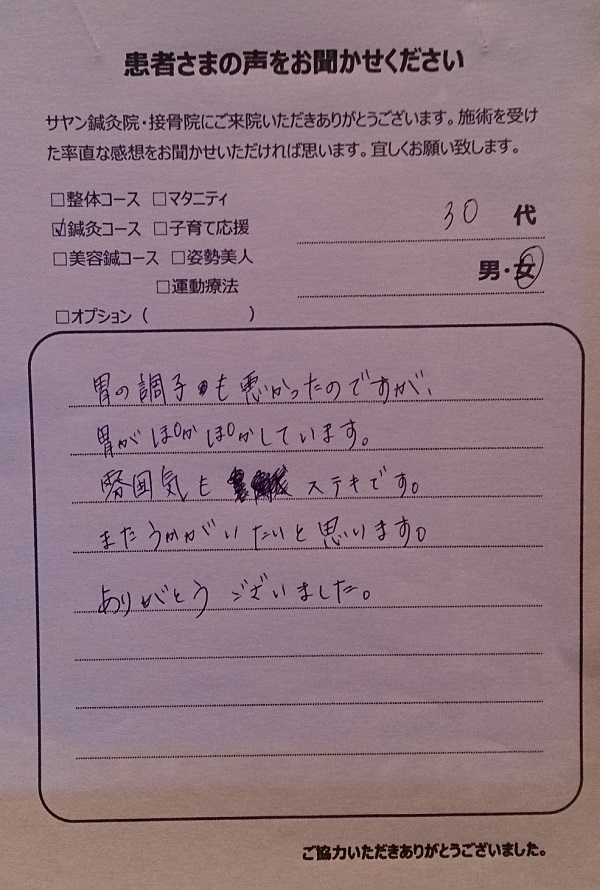 患者さまの声をお聞かせください
サヤン鍼灸院・接骨院にご来院いただきありがとうございます。施術を受け
た率直な感想をお聞かせいただければ思います。宜しくお願い致します。
□整体コース □マタニティ
☑鍼灸コース □子育て応援
30 代
□美容鍼コース □姿勢美人
男・女
□運動療法
□オプション ( )
胃の調子も悪かったのですが、
胃がぽかぽかしています。
雰囲気も ステキです。
またうかがいたいと思います。
ありがとうございました。
ご協力いただきありがとうございました。